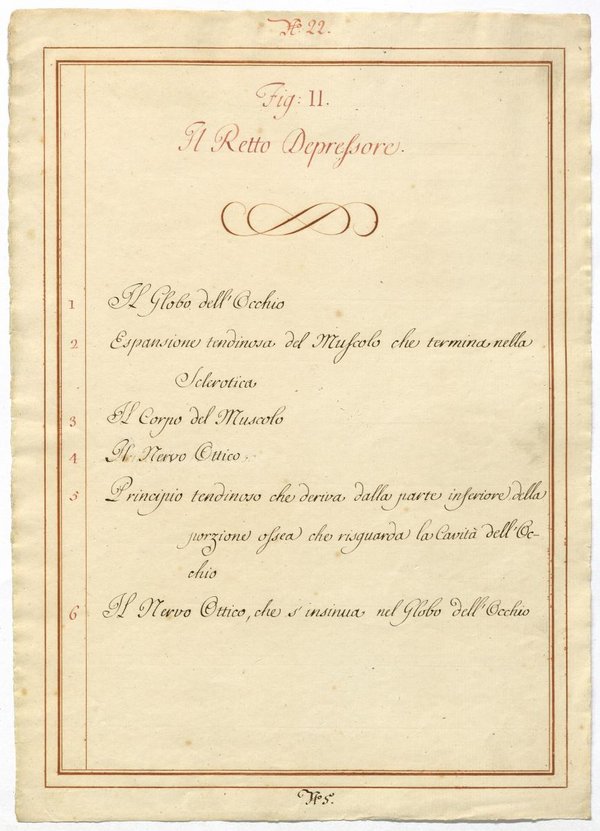 N.º 22.
Fig: II.
Il Retto Depreſsore.
1 Il Globo dell'Occhio
2 Espansione tendinosa del Muſcolo che termina nella
Sclerotica
3 Il Corpo del Muscolo
4 Il Nervo Ottico.
5 Principio tendinoso che deriva dalla parte inferiore della
porzione oſsea che risguarda la Cavità dell'Oc-
chio
6 Il Nervo Ottico, che s'insinua nel Globo dell'Occhio
N.º 5.